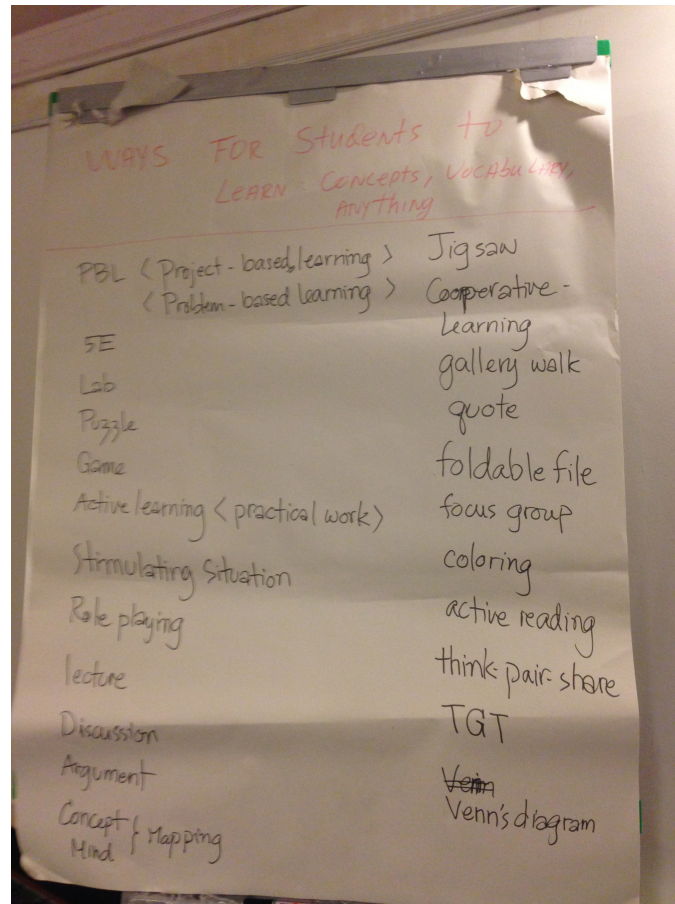 WAYS FOR Students to
LEARN CONCEPTS, VOCABULARY,
ANYTHING
PBL < Project-based learning >
< Problem-based learning >
5E
Lab
Puzzle
Game
Active learning < practical work >
Stimulating Situation
Role playing
lecture
Discussion
Argument
Concept } Mapping
Mind
Jigsaw
Cooperative-
Learning
gallery walk
quote
foldable file
focus group
coloring
active reading
think-pair-share
TGT
Venn's diagram